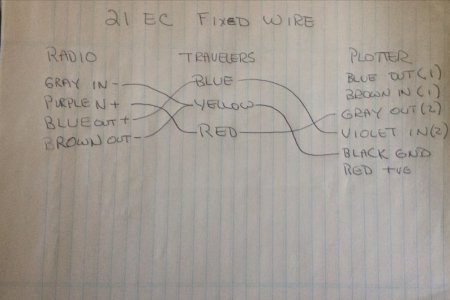 21 EC FIXED WIRE
RADIO
GRAY IN -
PURPLE IN +
BLUE OUT +
BROWN OUT -
TRAVELERS
BLUE
YELLOW
RED
PLOTTER
BLUE OUT (1)
BROWN IN (1)
GRAY OUT (2)
VIOLET IN (2)
BLACK GND
RED +VE